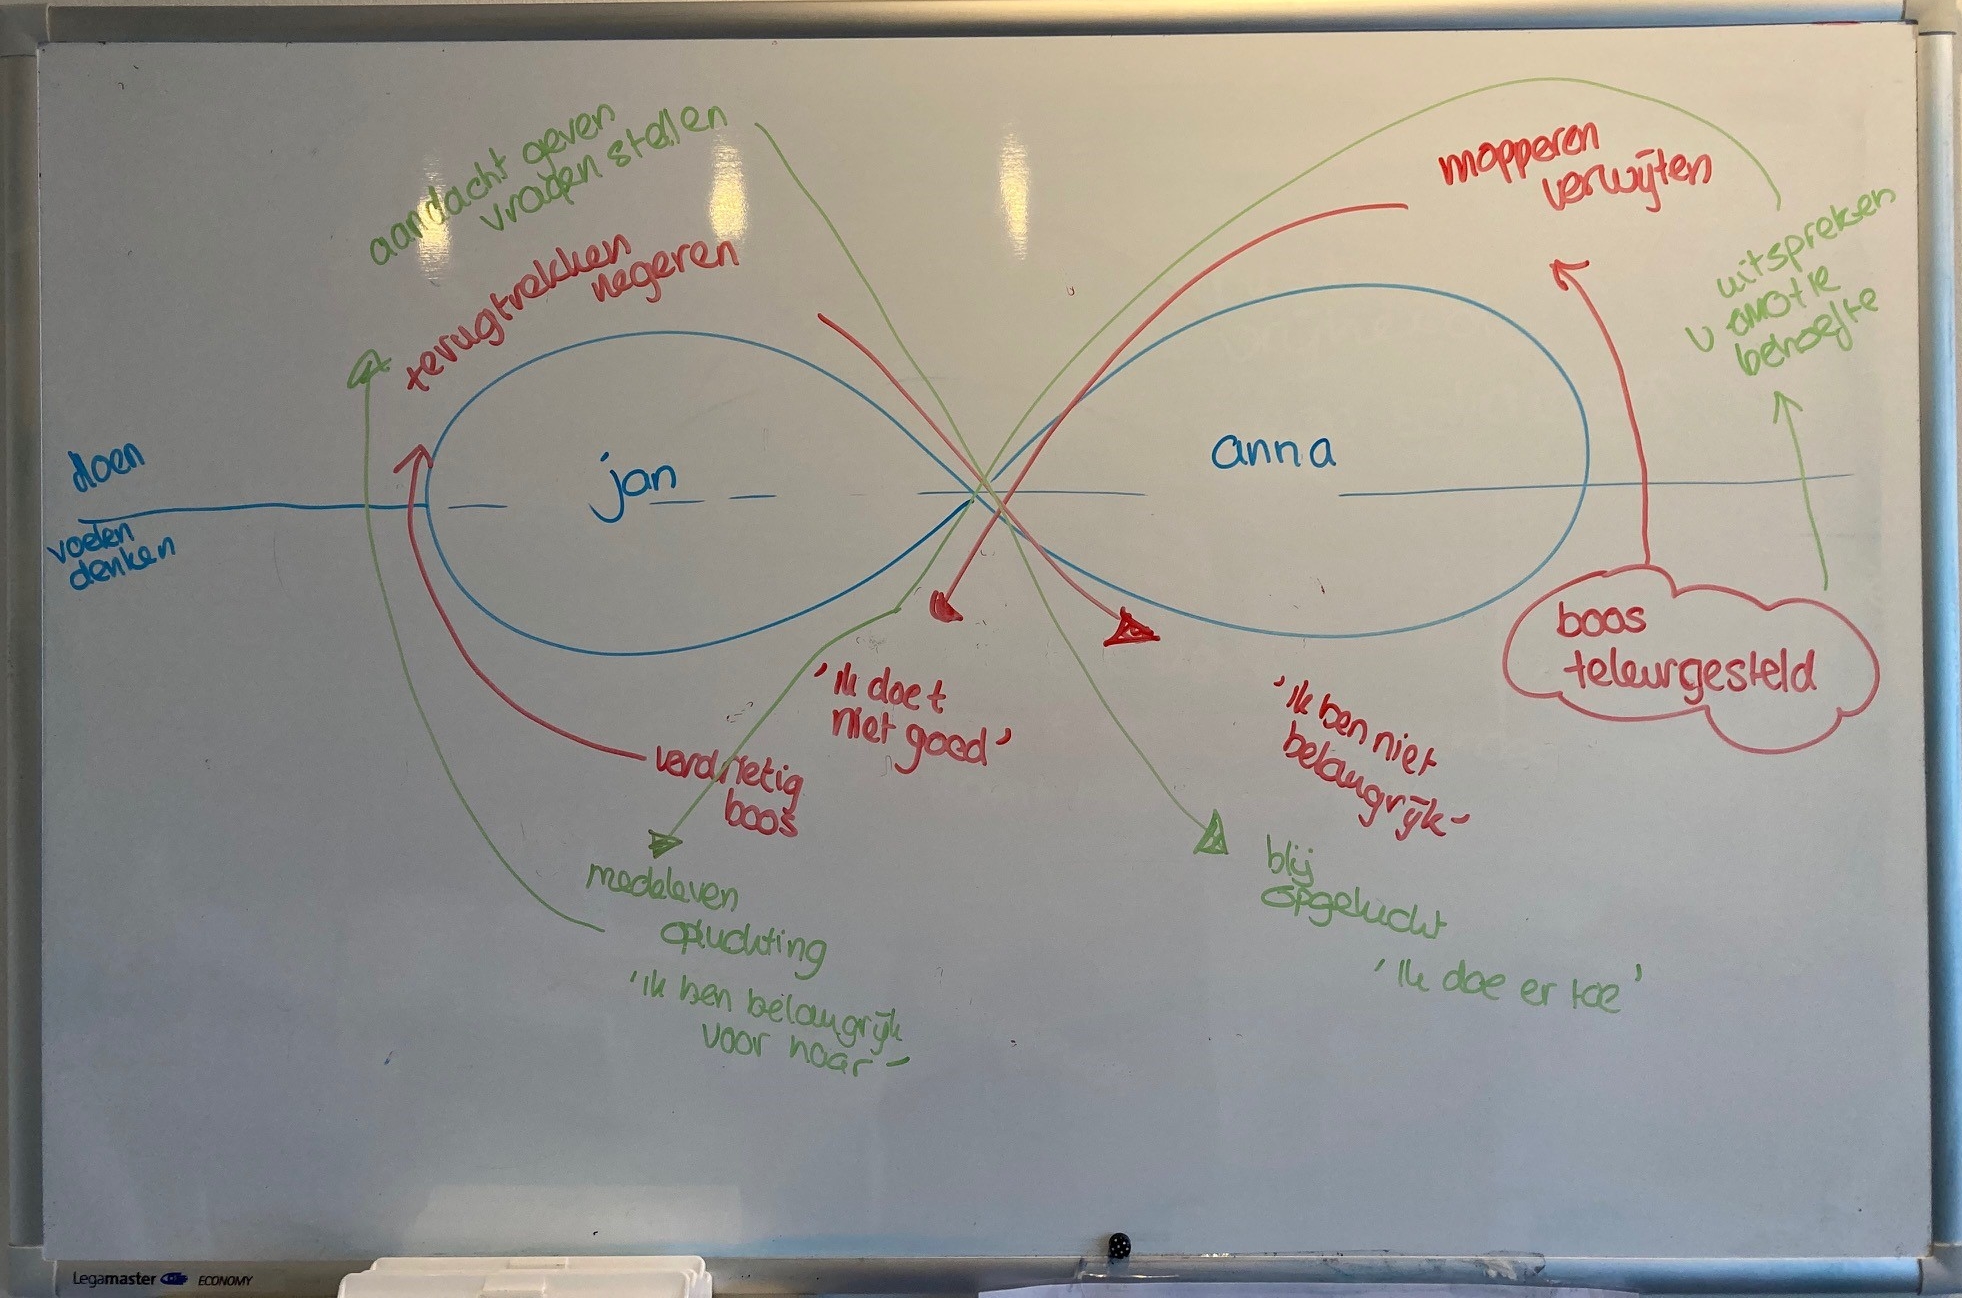 aandacht geven
vragen stellen
terugtrekken
negeren
mopperen
verwijten
uitspreken
v emotie
behoefte
doen
voelen
denken
jan
anna
boos
teleurgesteld
'ik doe t
niet goed'
verdrietig
boos
'ik ben niet
belangrijk'
medeleven
opluchting
'ik ben belangrijk
voor haar'
blij
opgelucht
'ik doe er toe'
Legamaster ECONOMY